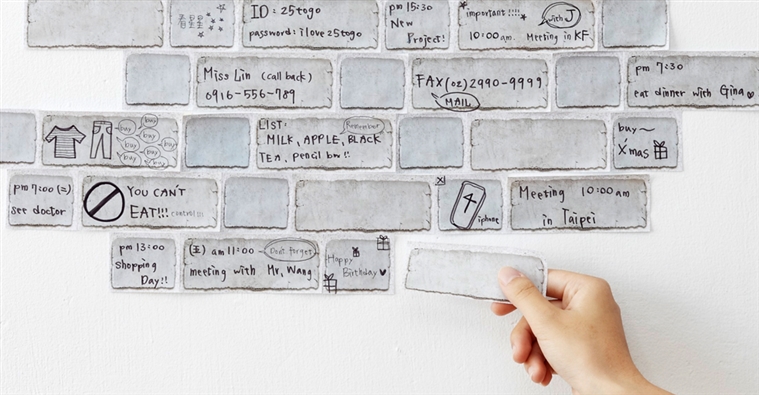 看星星
ID: 25togo
password: i love 25togo
pm 15:30
New
Project!
important!!!!
with J
10:00 am. Meeting in KF
Miss Lin (call back)
0916-556-789
FAX (02) 2990-9999
MAIL
pm 7:30
eat dinner with Gina
buy
buy
buy
buy
buy
buy
buy
LIST:
Remember
MILK, APPLE, BLACK
TEA, pencil box!!
buy~
X'mas
pm 7:00 (二)
see doctor
YOU CAN'T
EAT!!! control!!!
4
iphone
Meeting 10:00 am
in Taipei
pm 13:00
shopping
Day!!
(五) am 11:00
Don't forget
meeting with Mr. Wang
Happy
Birthday